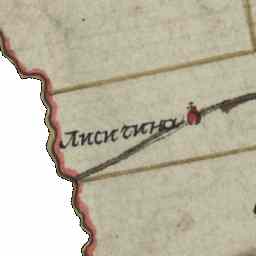 Лисичина